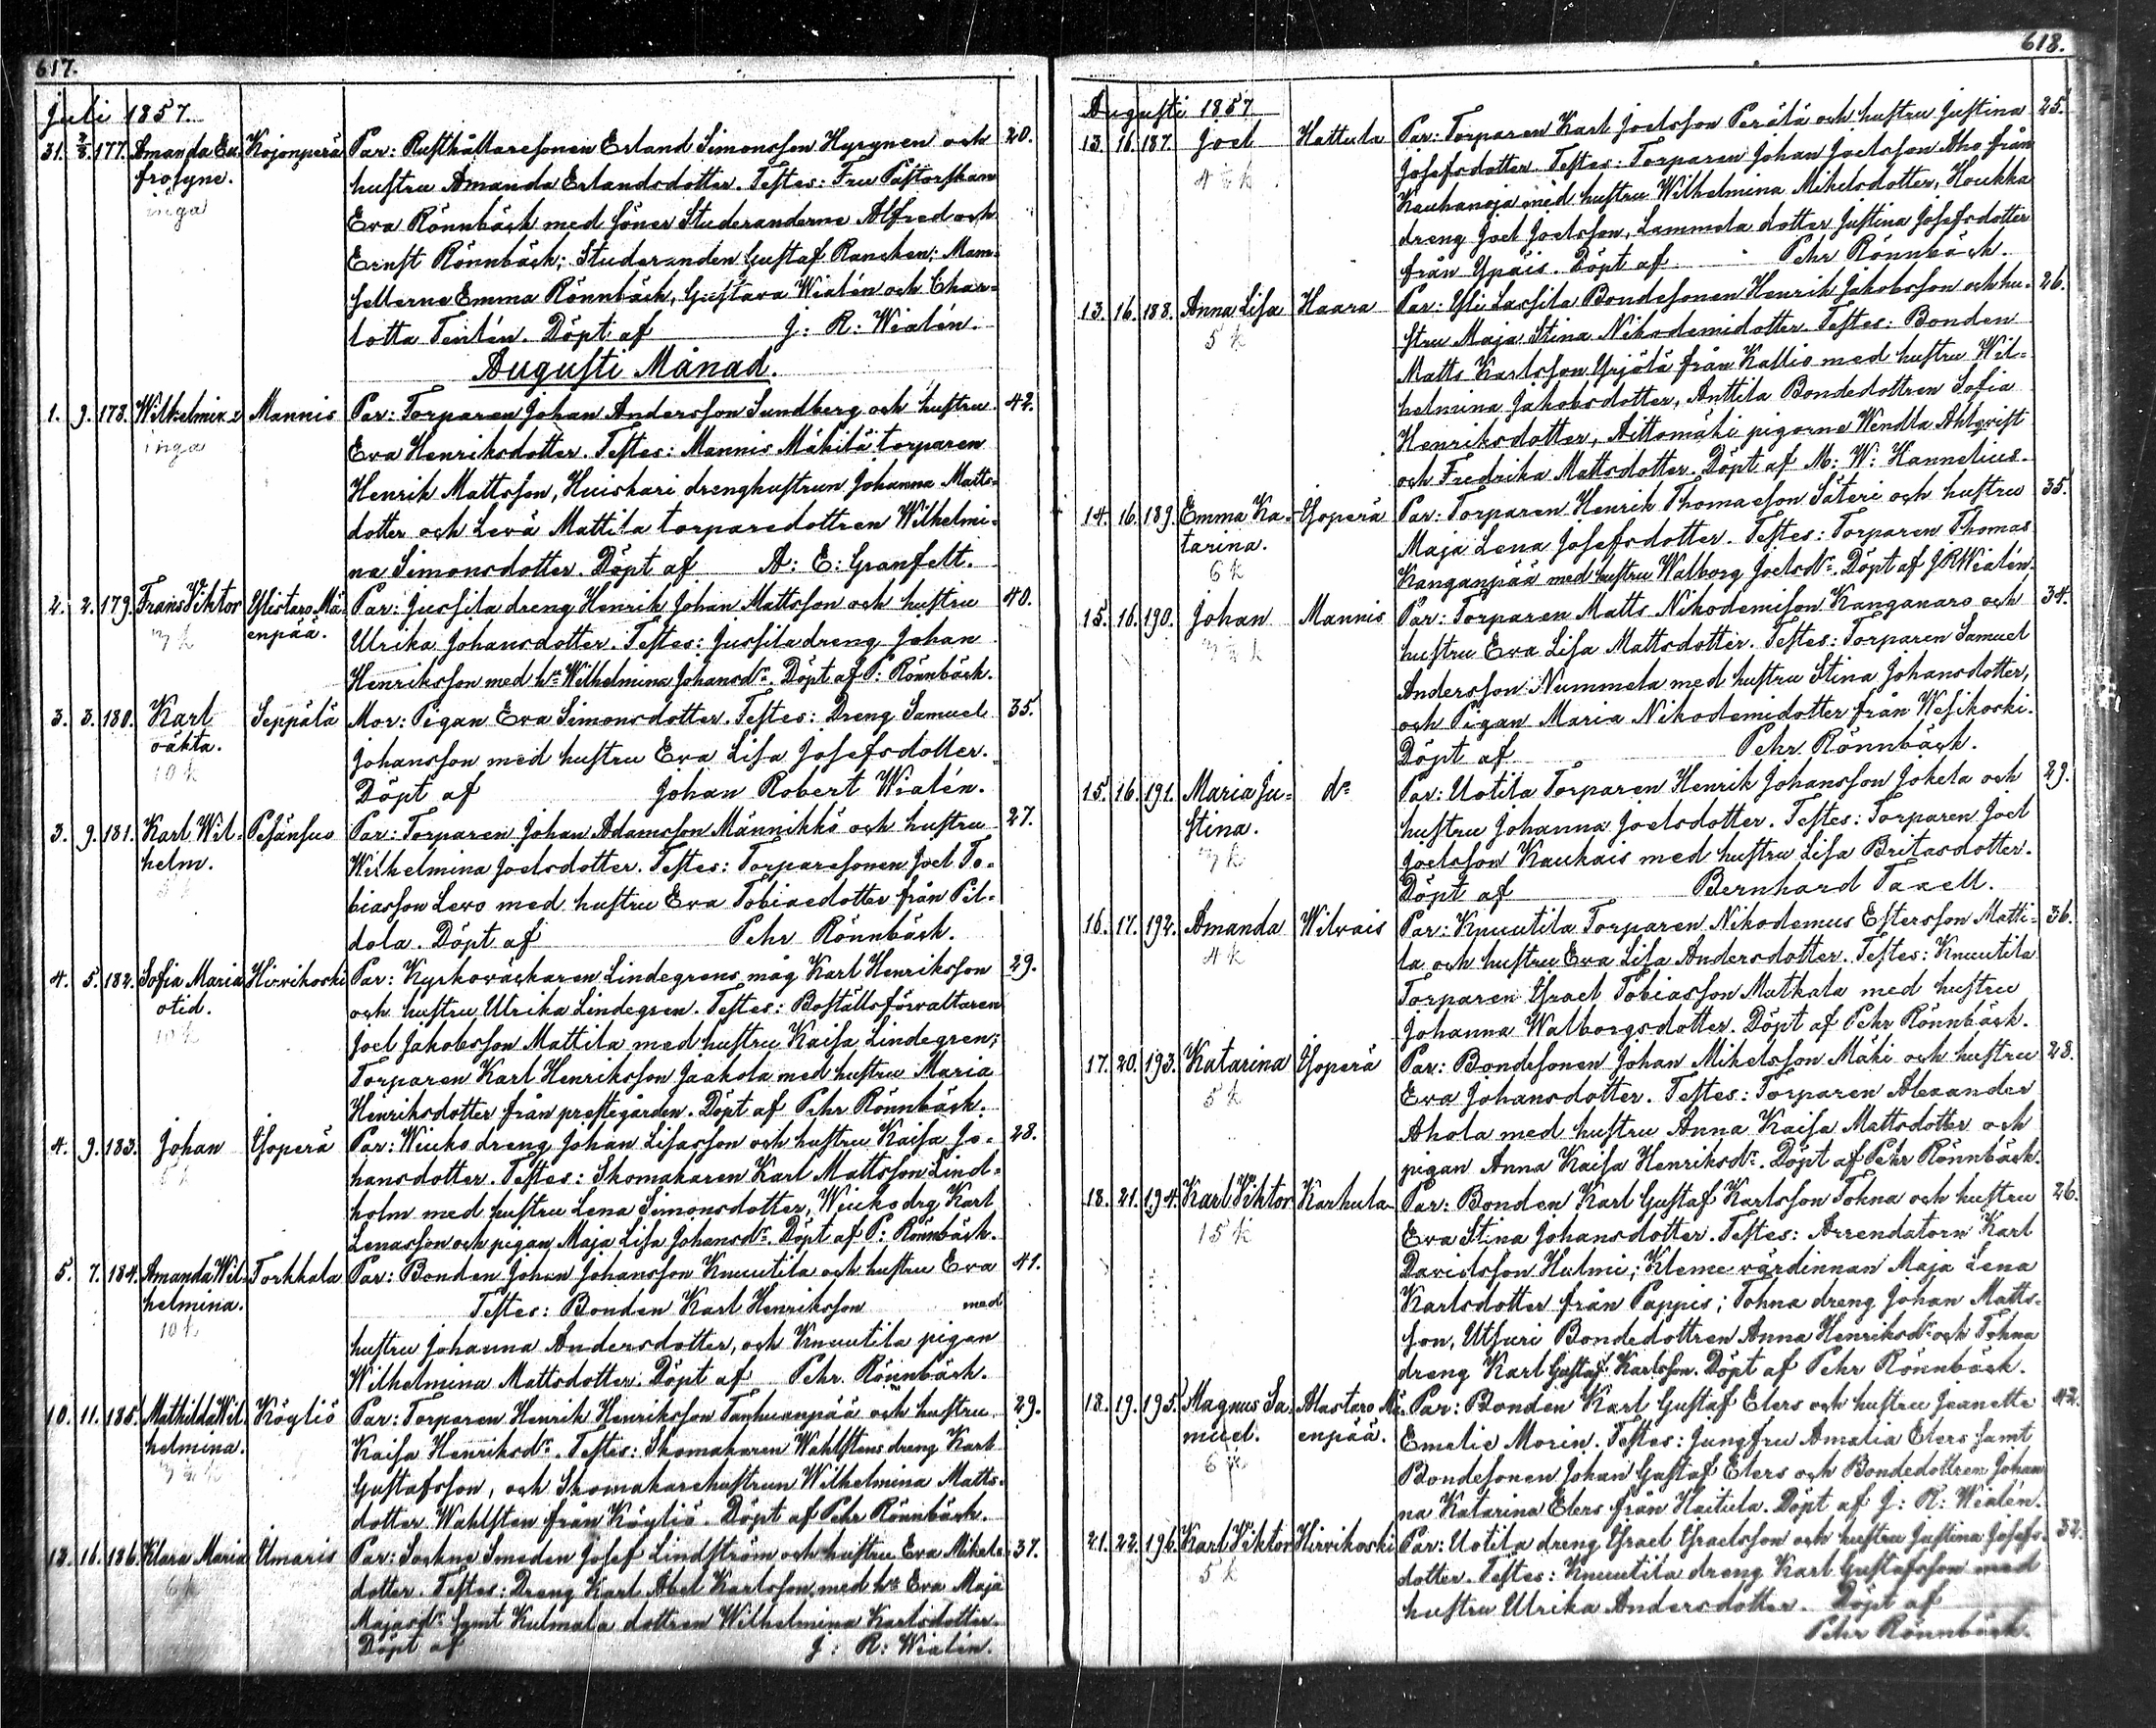 617.
Juli 1857.
31. 2/8 177. Amanda Eu- Kojonperä Par: Rusthållaresonen Erland Simonsson Hyrynen och 20.
frosyne. hustru Amanda Erlandsdotter. Testes: Fru Pastorskan
inga
Eva Rönnbäck med söner Studeranderne Alfred och
Ernst Rönnbäck; Studeranden Gustaf Rancken; Mam-
sellerne Emma Rönnbäck, Gustava Wialén och Char-
lotta Tentén. Döpt af J: R: Wialén.
Augusti Månad.
1. 9. 178. Wilhelmina Mannis Par: Torparen Johan Andersson Sundberg och hustru 42.
inga Eva Henriksdotter. Testes: Mannis Mäkilä torparen
Henrik Mattsson, Huiskari drenghustrun Johanna Matts-
dotter och Levä Mattila torparedottren Wilhelmi-
na Simonsdotter. Döpt af A: E: Granfelt.
2. 2. 179. Frans Viktor Ylistaro Mä- Par: Jussila dreng Henrik Johan Mattsson och hustru 40.
7 k enpää. Ulrika Johansdotter. Testes: Jussila dreng Johan
Henriksson med h:u Wilhelmina Johansd:r. Döpt af P: Rönnbäck.
3. 3. 180. Karl Seppälä Mor: Pigan Eva Simonsdotter. Testes: Dreng Samuel 35.
oäkta. Johansson med hustru Eva Lisa Josefsdotter.
10 k Döpt af Johan Robert Wialén.
3. 9. 181. Karl Wil- Pesänsuo Par: Torparen Johan Adamsson Männikkö och hustru 27.
helm. Wilhelmina Joelsdotter. Testes: Torparesonen Joel To-
biasson Levo med hustru Eva Tobiaedotter från Pil-
dola. Döpt af Pehr Rönnbäck.
4. 5. 182. Sofia Maria Hirvikoski Par: Kyrkoväckaren Lindegrens måg Karl Henriksson 29.
otid. och hustru Ulrika Lindegren. Testes: Boställsförvaltaren
10 k Joel Jakobsson Mattila med hustru Kaisa Lindegren;
Torparen Karl Henriksson Jaakola med hustru Maria
Henriksdotter från prestegården. Döpt af Pehr Rönnbäck.
4. 9. 183. Johan Ysoperä Par: Wiuko dreng Johan Lisasson och hustru Kaisa Jo- 28.
hansdotter. Testes: Skomakaren Karl Mattsson Lind-
holm med hustru Lena Simonsdotter, Wiuko drg Karl
Lenasson och pigan Maja Lisa Johansd:r. Döpt af P: Rönnbäck.
5. 7. 184. Amanda Wil- Torkkala Par: Bonden Johan Johansson Knuutila och hustru Eva 41.
helmina. Testes: Bonden Karl Henriksson med
10 k hustru Johanna Andersdotter, och Knuutila pigan
Wilhelmina Mattsdotter. Döpt af Pehr Rönnbäck.
10. 11. 185. Mathilda Wil- Köyliö Par: Torparen Henrik Henriksson Tanhuanpää och hustru 29.
helmina. Kaisa Henriksd:r. Testes: Skomakaren Wahlstens dreng Karl
Gustafsson, och Skomakarehustrun Wilhelmina Matts-
dotter Wahlsten från Köyliö. Döpt af Pehr Rönnbäck.
12. 16. 186. Klara Maria Umaris Par: Sockne Smeden Josef Lindström och hustru Eva Mikels- 37.
6 k dotter. Testes: Dreng Karl Abel Karlsson med h:u Eva Maja
Majasd:r samt Kulmala dottren Wilhelmina Karlsdotter.
Döpt af J: R: Wialén.
618.
Augusti 1857
13. 16. 187. Joel Hattula Par: Torparen Karl Joelsson Perälä och hustru Justina 25.
4 ½ k Josefsdotter. Testes: Torparen Johan Joelsson Aho från
Kauhanoja med hustru Wilhelmina Mikelsdotter, Houkka
dreng Joel Joelsson, Lammela dotter Justina Josefsdotter
från Ypäis. Döpt af Pehr Rönnbäck.
13. 16. 188. Anna Lisa Haara Par: Yli Lassila Bondesonen Henrik Jakobsson och hu- 26.
5 k stru Maja Stina Nikodemidotter. Testes: Bonden
Matts Karlsson Yrjölä från Kallio med hustru Wil-
helmina Jakobsdotter, Anttila Bondedottren Sofia
Henriksdotter, Aittomäki pigorne Wendla Ahlqvist
och Fredrika Mattsdotter. Döpt af M: W: Hannelius.
14. 16. 189. Emma Ka- Ysoperä Par: Torparen Henrik Thomasson Säteri och hustru 35.
tarina. Maja Lena Josefsdotter. Testes: Torparen Thomas
6 k Kanganpää med hustru Walborg Joelsd:r. Döpt af J R Wialén.
15. 16. 190. Johan Mannis Par: Torparen Matts Nikodemisson Kanganaro och 34.
7 ½ k hustru Eva Lisa Mattsdotter. Testes: Torparen Samuel
Andersson Nummela med hustru Stina Johansdotter,
och Pigan Maria Nikodemidotter från Wesikoski.
Döpt af Pehr Rönnbäck.
15. 16. 191. Maria Ju- d:o Par: Uotila Torparen Henrik Johansson Jokela och 29.
stina. hustru Johanna Joelsdotter. Testes: Torparen Joel
7 k Joelsson Kaukais med hustru Lisa Britasdotter.
Döpt af Bernhard Taxell.
16. 17. 192. Amanda Wilvais Par: Knuutila Torparen Nikodemus Estersson Matti- 36.
4 k la och hustru Eva Lisa Andersdotter. Testes: Knuutila
Torparen Ysrael Tobiasson Matkala med hustru
Johanna Walborgsdotter. Döpt af Pehr Rönnbäck.
17. 20. 193. Katarina Ysoperä Par: Bondesonen Johan Mikelsson Mäki och hustru 28.
5 k Eva Johansdotter. Testes: Torparen Alexander
Ahola med hustru Anna Kaisa Mattsdotter och
pigan Anna Kaisa Henriksd:r. Döpt af Pehr Rönnbäck.
18. 21. 194. Karl Viktor Karhula Par: Bonden Karl Gustaf Karlsson Tohna och hustru 26.
15 k Eva Stina Johansdotter. Testes: Arrendatorn Karl
Davidsson Hulmi; Kleme värdinnan Maja Lena
Karlsdotter från Pappis; Tohna dreng Johan Matts-
son, Utsuri Bondedottren Anna Henriksd:r och Tohna
dreng Karl Gustaf Karlsson. Döpt af Pehr Rönnbäck.
18. 19. 195. Magnus Sa- Alastaro Mä- Par: Bonden Karl Gustaf Elers och hustru Jeanette 42.
muel. enpää. Emelie Morin. Testes: Jungfru Amalia Elers samt
6 k Bondesonen Johan Gustaf Elers och Bondedottren Johan
na Katarina Elers från Haitula. Döpt af J: R: Wialén.
21. 22. 196. Karl Viktor Hirvikoski Par: Uotila dreng Ysrael Ysraelsson och hustru Justina Josefs- 32.
5 k dotter. Testes: Knuutila dreng Karl Gustafsson med
hustru Ulrika Andersdotter. Döpt af
Pehr Rönnbäck.